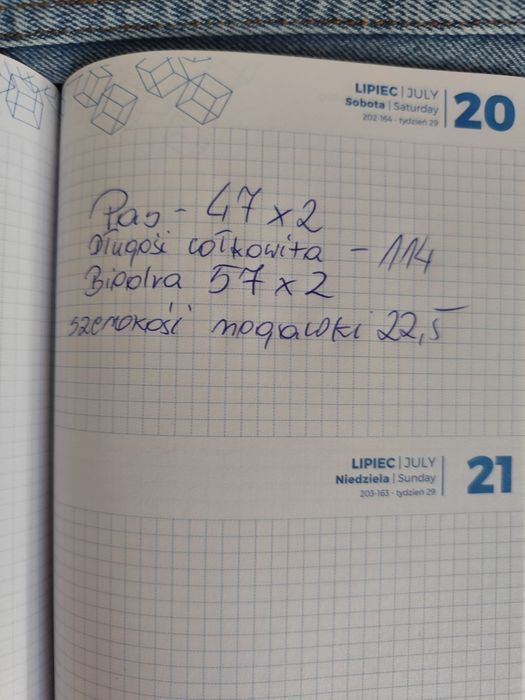 LIPIEC | JULY
Sobota | Saturday
202-164 - tydzień 29
20
Pas - 47 x 2
Długość całkowita - 114
Biodra 57 x 2
szerokość nogawki 22,5
LIPIEC | JULY
Niedziela | Sunday
203-163 - tydzień 29
21